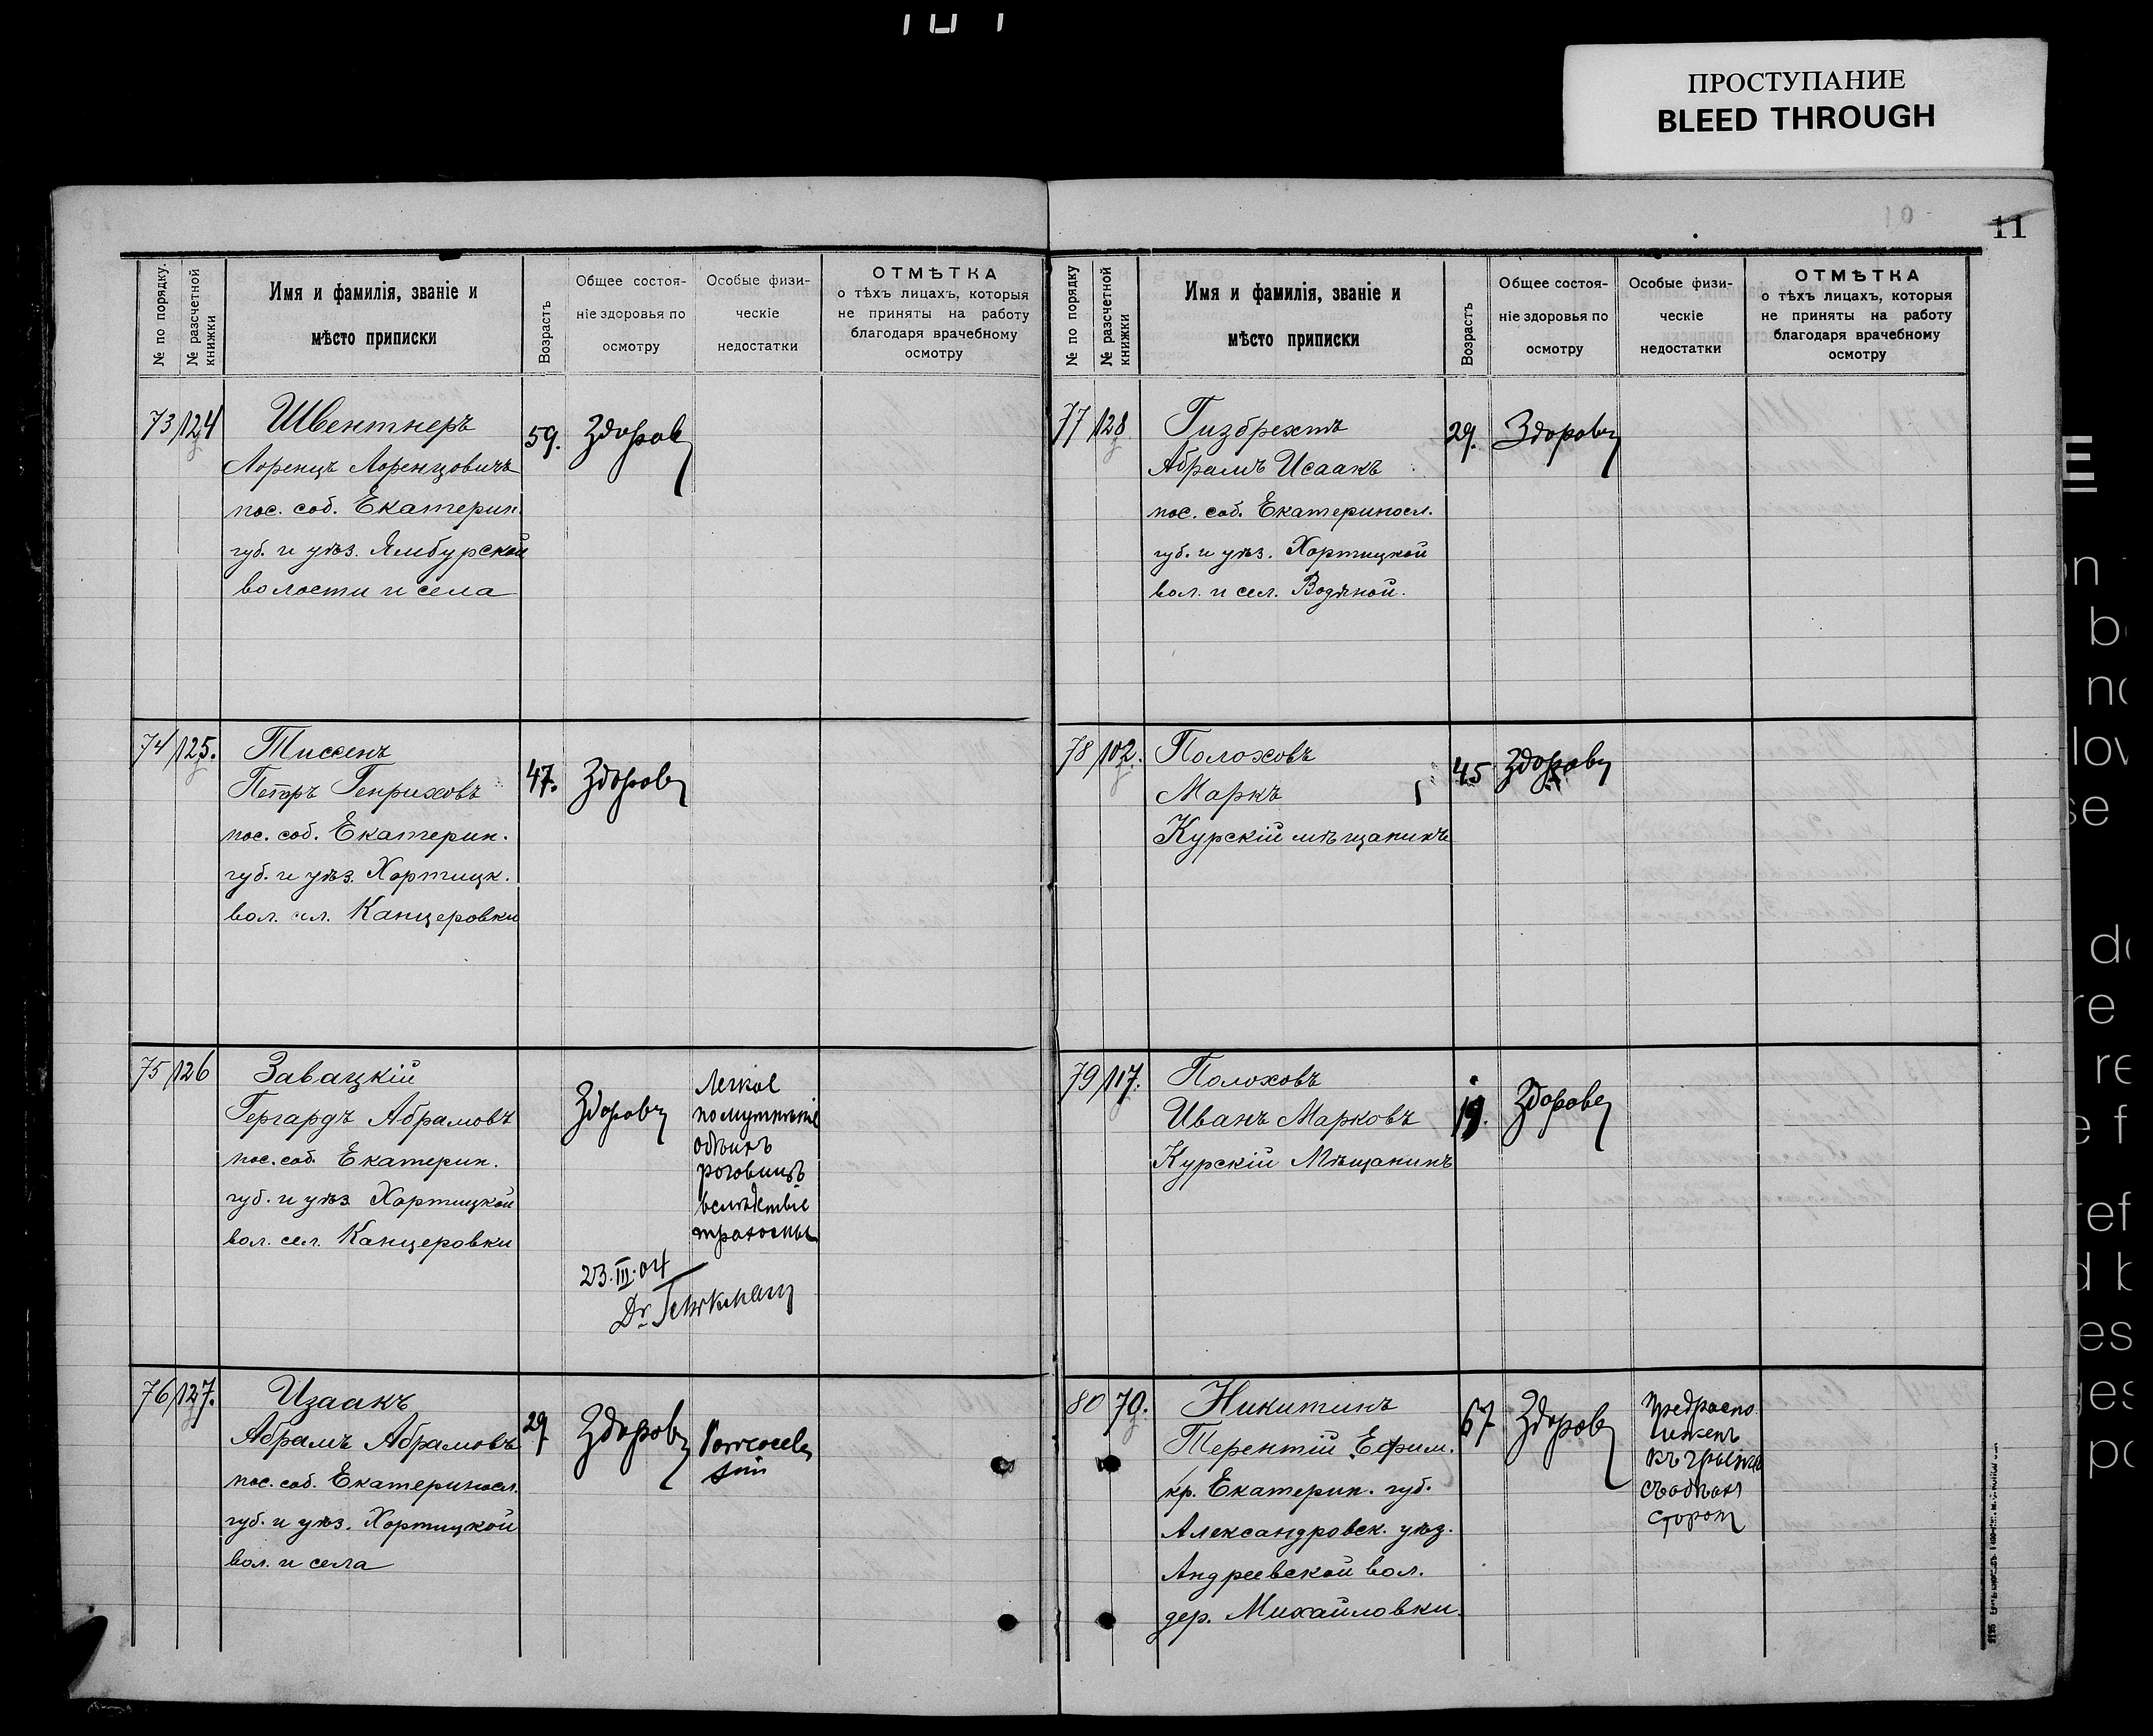 ПРОСТУПАНИЕ
BLEED THROUGH
11
№ по порядку.
№ разсчетной книжки
Имя и фамилія, званіе и
мѣсто приписки
Возрастъ
Общее состоя-
ніе здоровья по
осмотру
Особые физи-
ческіе
недостатки
ОТМѢТКА
о тѣхъ лицахъ, которыя
не приняты на работу
благодаря врачебному
осмотру
73 124 Швентнеръ 59. Здоровъ
Лоренцъ Лоренцовичъ
пос. соб. Екатерин.
губ. и уѣз. Ямбурской
волости и села
74 125. Тиссенъ 47. Здоровъ
Петръ Генриховъ
пос. соб. Екатерин.
губ. и уѣз. Хортицк.
вол. сел. Канцеровки
75 126 Завацкій Здоровъ
Гергардъ Абрамовъ
пос. соб. Екатерин.
губ. и уѣз. Хортицкой
вол. сел. Канцеровки
Легкое
помутнѣніе
обѣихъ
роговицъ
вслѣдствіе
трахомы
23.III.04
Dr.
76 127. Изаакъ 29 Здоровъ
Абрамъ Абрамовъ
пос. соб. Екатериносл.
губ. и уѣз. Хортицкой
вол. и села
№ по порядку
№ разсчетной книжки
Имя и фамилія, званіе и
мѣсто приписки
Возрастъ
Общее состоя-
ніе здоровья по
осмотру
Особые физи-
ческіе
недостатки
ОТМѢТКА
о тѣхъ лицахъ, которыя
не приняты на работу
благодаря врачебному
осмотру
77 128 Гизбрехтъ 29. Здоровъ
Абрамъ Исаакъ
пос. соб. Екатериносл.
губ. и уѣз. Хортицкой
вол. и сел. Водяной.
78 102. Полоховъ 45 Здоровъ
Маркъ
Курскій мѣщанинъ
79 117. Полоховъ 19. Здоровъ
Иванъ Марковъ
Курскій Мѣщанинъ
80 70. Никитинъ 67 Здоровъ
Терентій Ефим.
кр. Екатерин. губ.
Александровск. уѣз.
Андреевской вол.
дер. Михайловки.
Предраспо
ложенъ
къ грыжѣ
съ обѣихъ
сторон